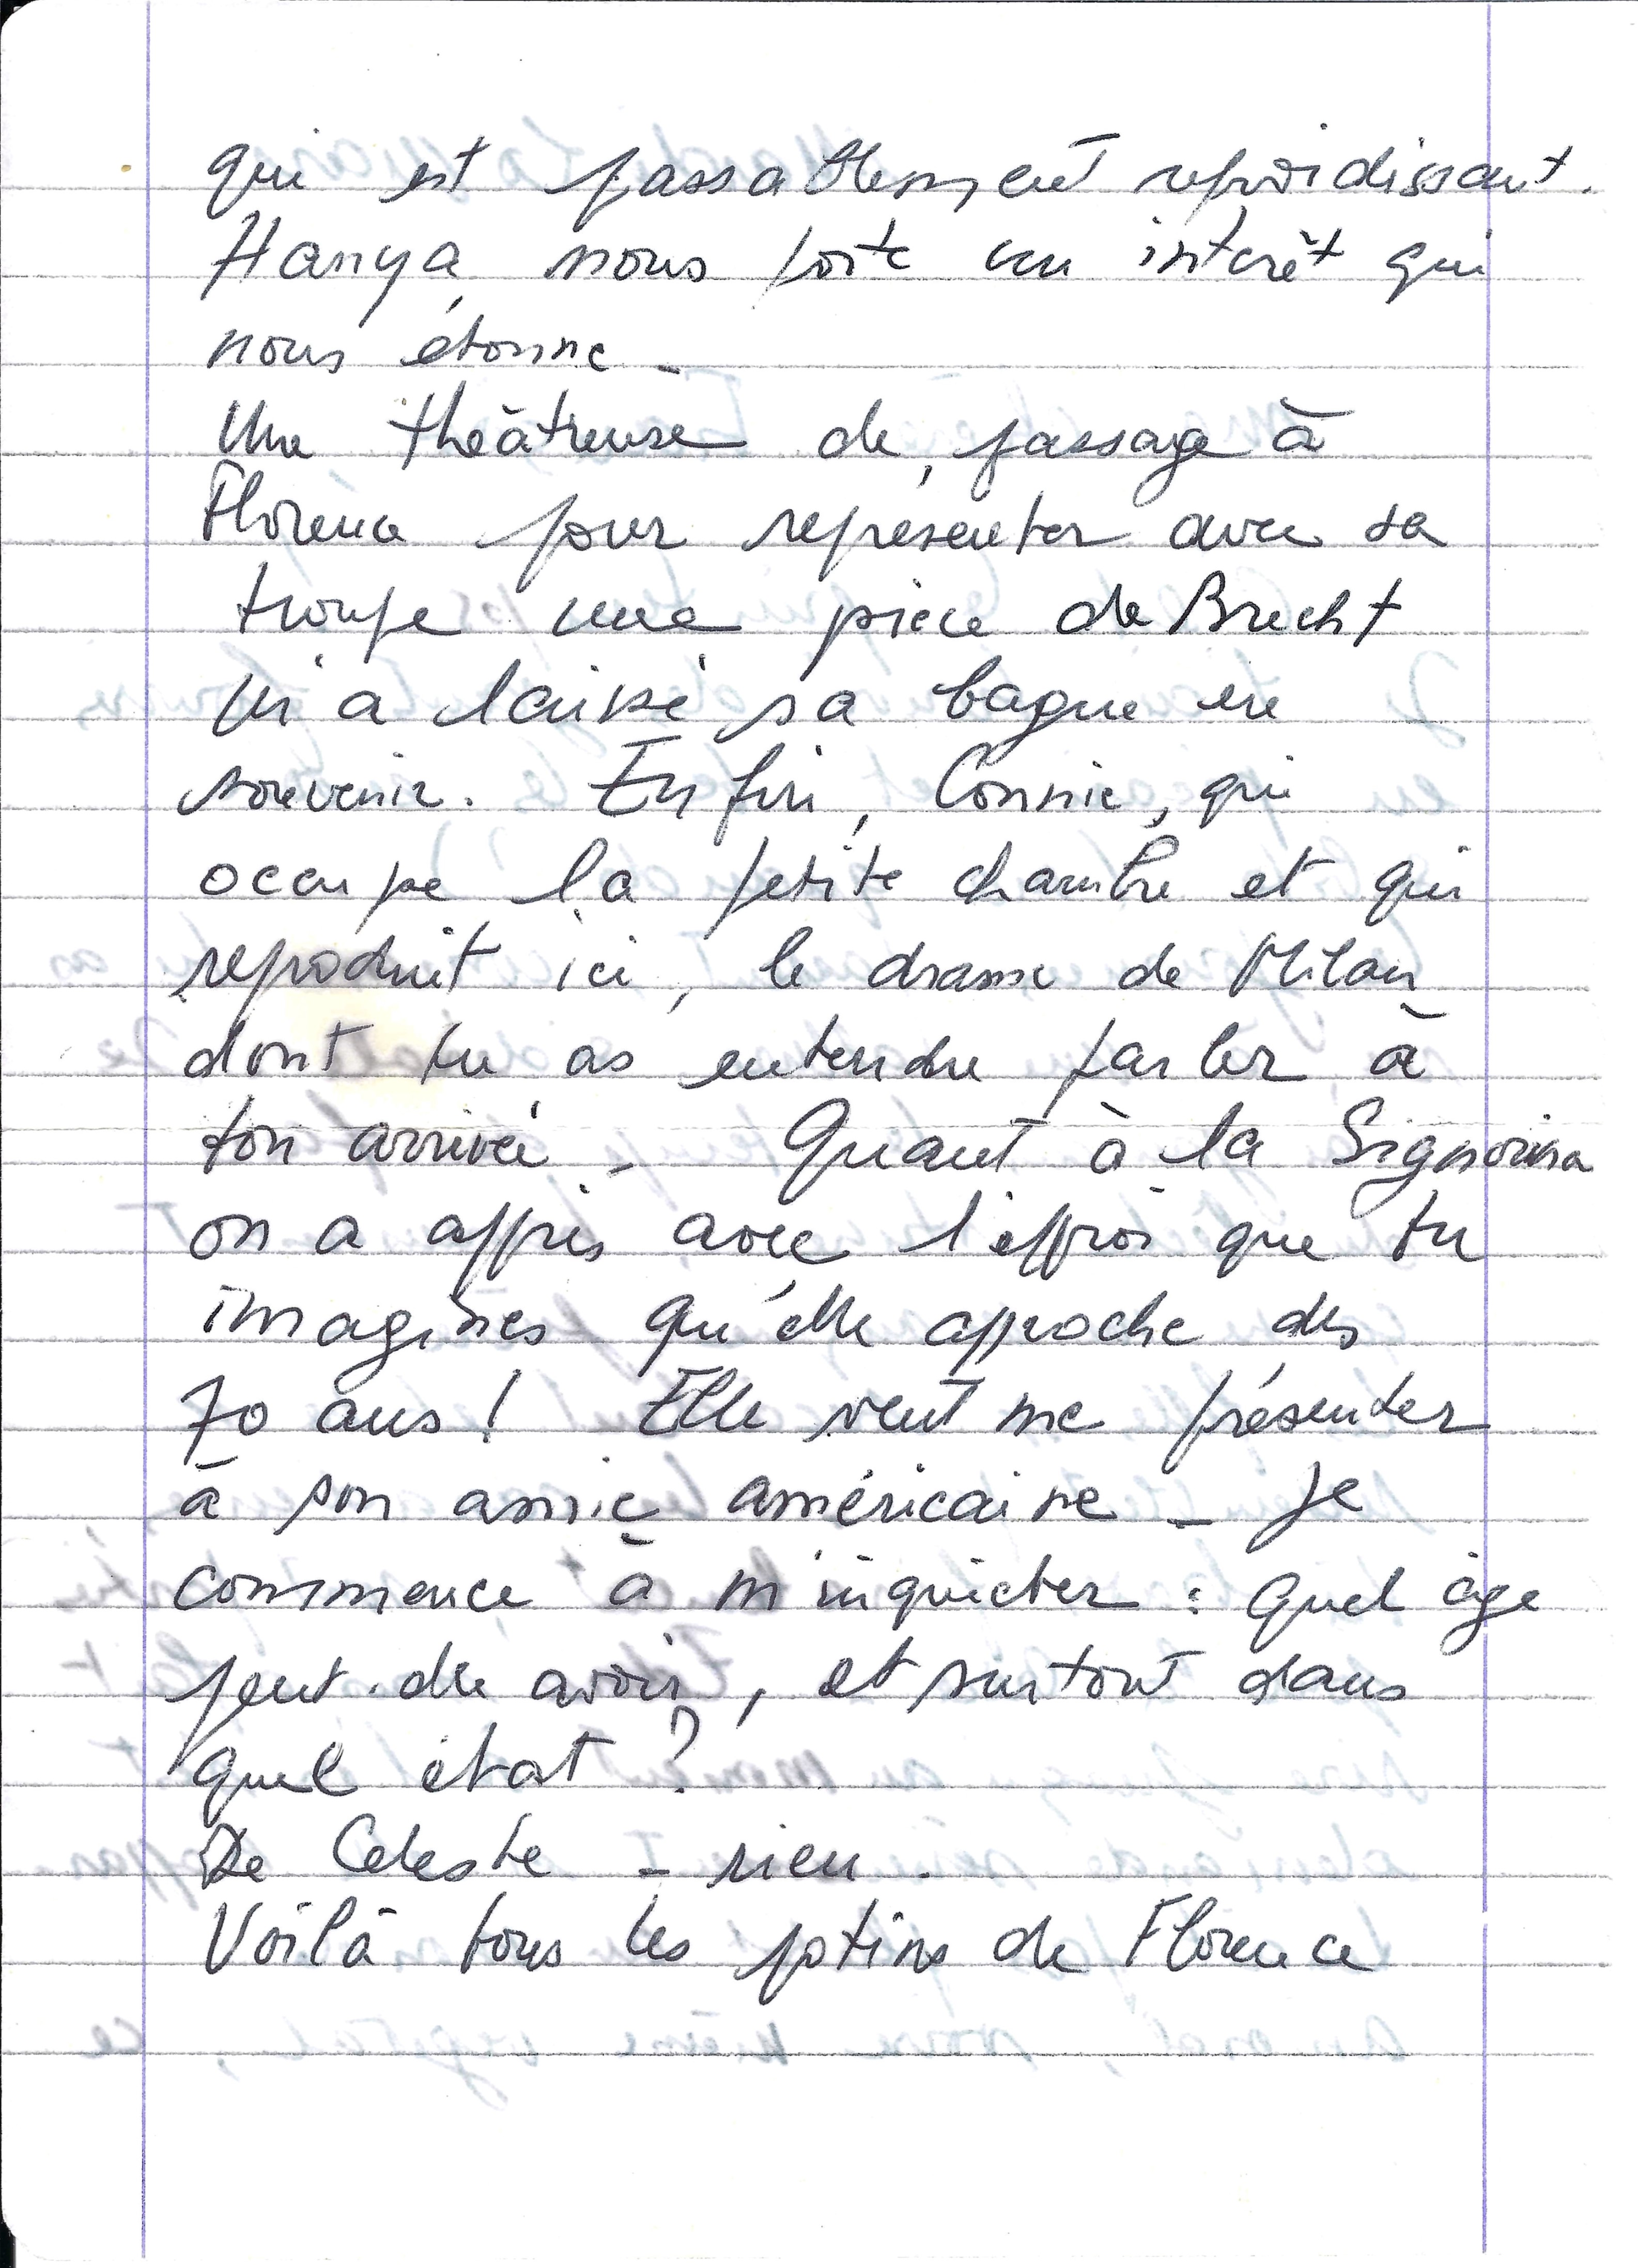 qui est passablement refroidissant.
Hanya nous porte un intérêt qui
nous étonne _
Une théâtreuse de passage à
Florence pour représenter avec sa
troupe une pièce de Brecht
m'a laissé sa bague en
souvenir. Enfin, Connie, qui
occupe la petite chambre et qui
reproduit ici, le drame de Milan
dont tu as entendu parler à
ton arrivée _ Quant à la Signorina
on a appris avec l'effroi que tu
imagines qu'elle approche des
70 ans ! Elle veut me présenter
à son amie américaine _ Je
commence à m'inquieter : Quel âge
peut-elle avoir, et surtout dans
quel état ?
De Celeste _ rien.
Voilà tous les potins de Florence